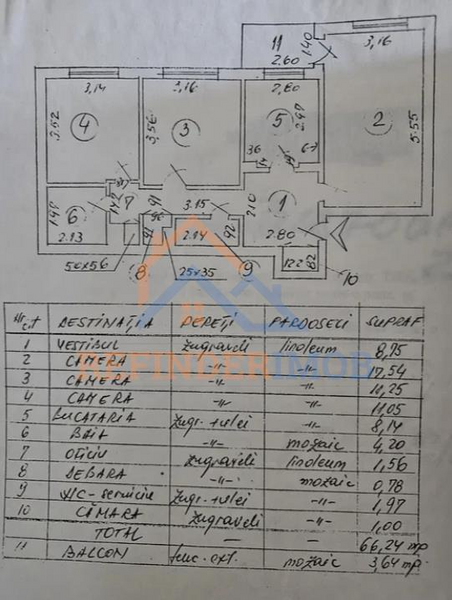 11
1.40
2.60
3.16
3.14
3.16
2.80
3.62
4
3.56
3
5
2.97
2
5.55
36
67
1.42
7
1.49
6
2.13
91
3.15
2.10
1
2.80
92
2.14
50x56
8
25x35
9
122
82
10
REFINDER IMOB
Nr. crt DESTINAȚIA PEREȚI PARDOSELI SUPRAF
1 VESTIBUL zugraveli linoleum 8,75
2 CAMERA -11- -11- 17,54
3 CAMERA -11- -11- 11,25
4 CAMERA -11- -11- 11,05
5 BUCATARIA zugr.+ulei -11- 8,14
6 BAIA -11- mozaic 4,20
7 OFICIU zugraveli linoleum 1,56
8 DEBARA -11- mozaic 0,78
9 WC-serviciu zugr.+ulei -11- 1,97
10 CĂMARA zugraveli -11- 1,00
TOTAL - - 66,24 mp
11 BALCON ext. mozaic 3,64 mp